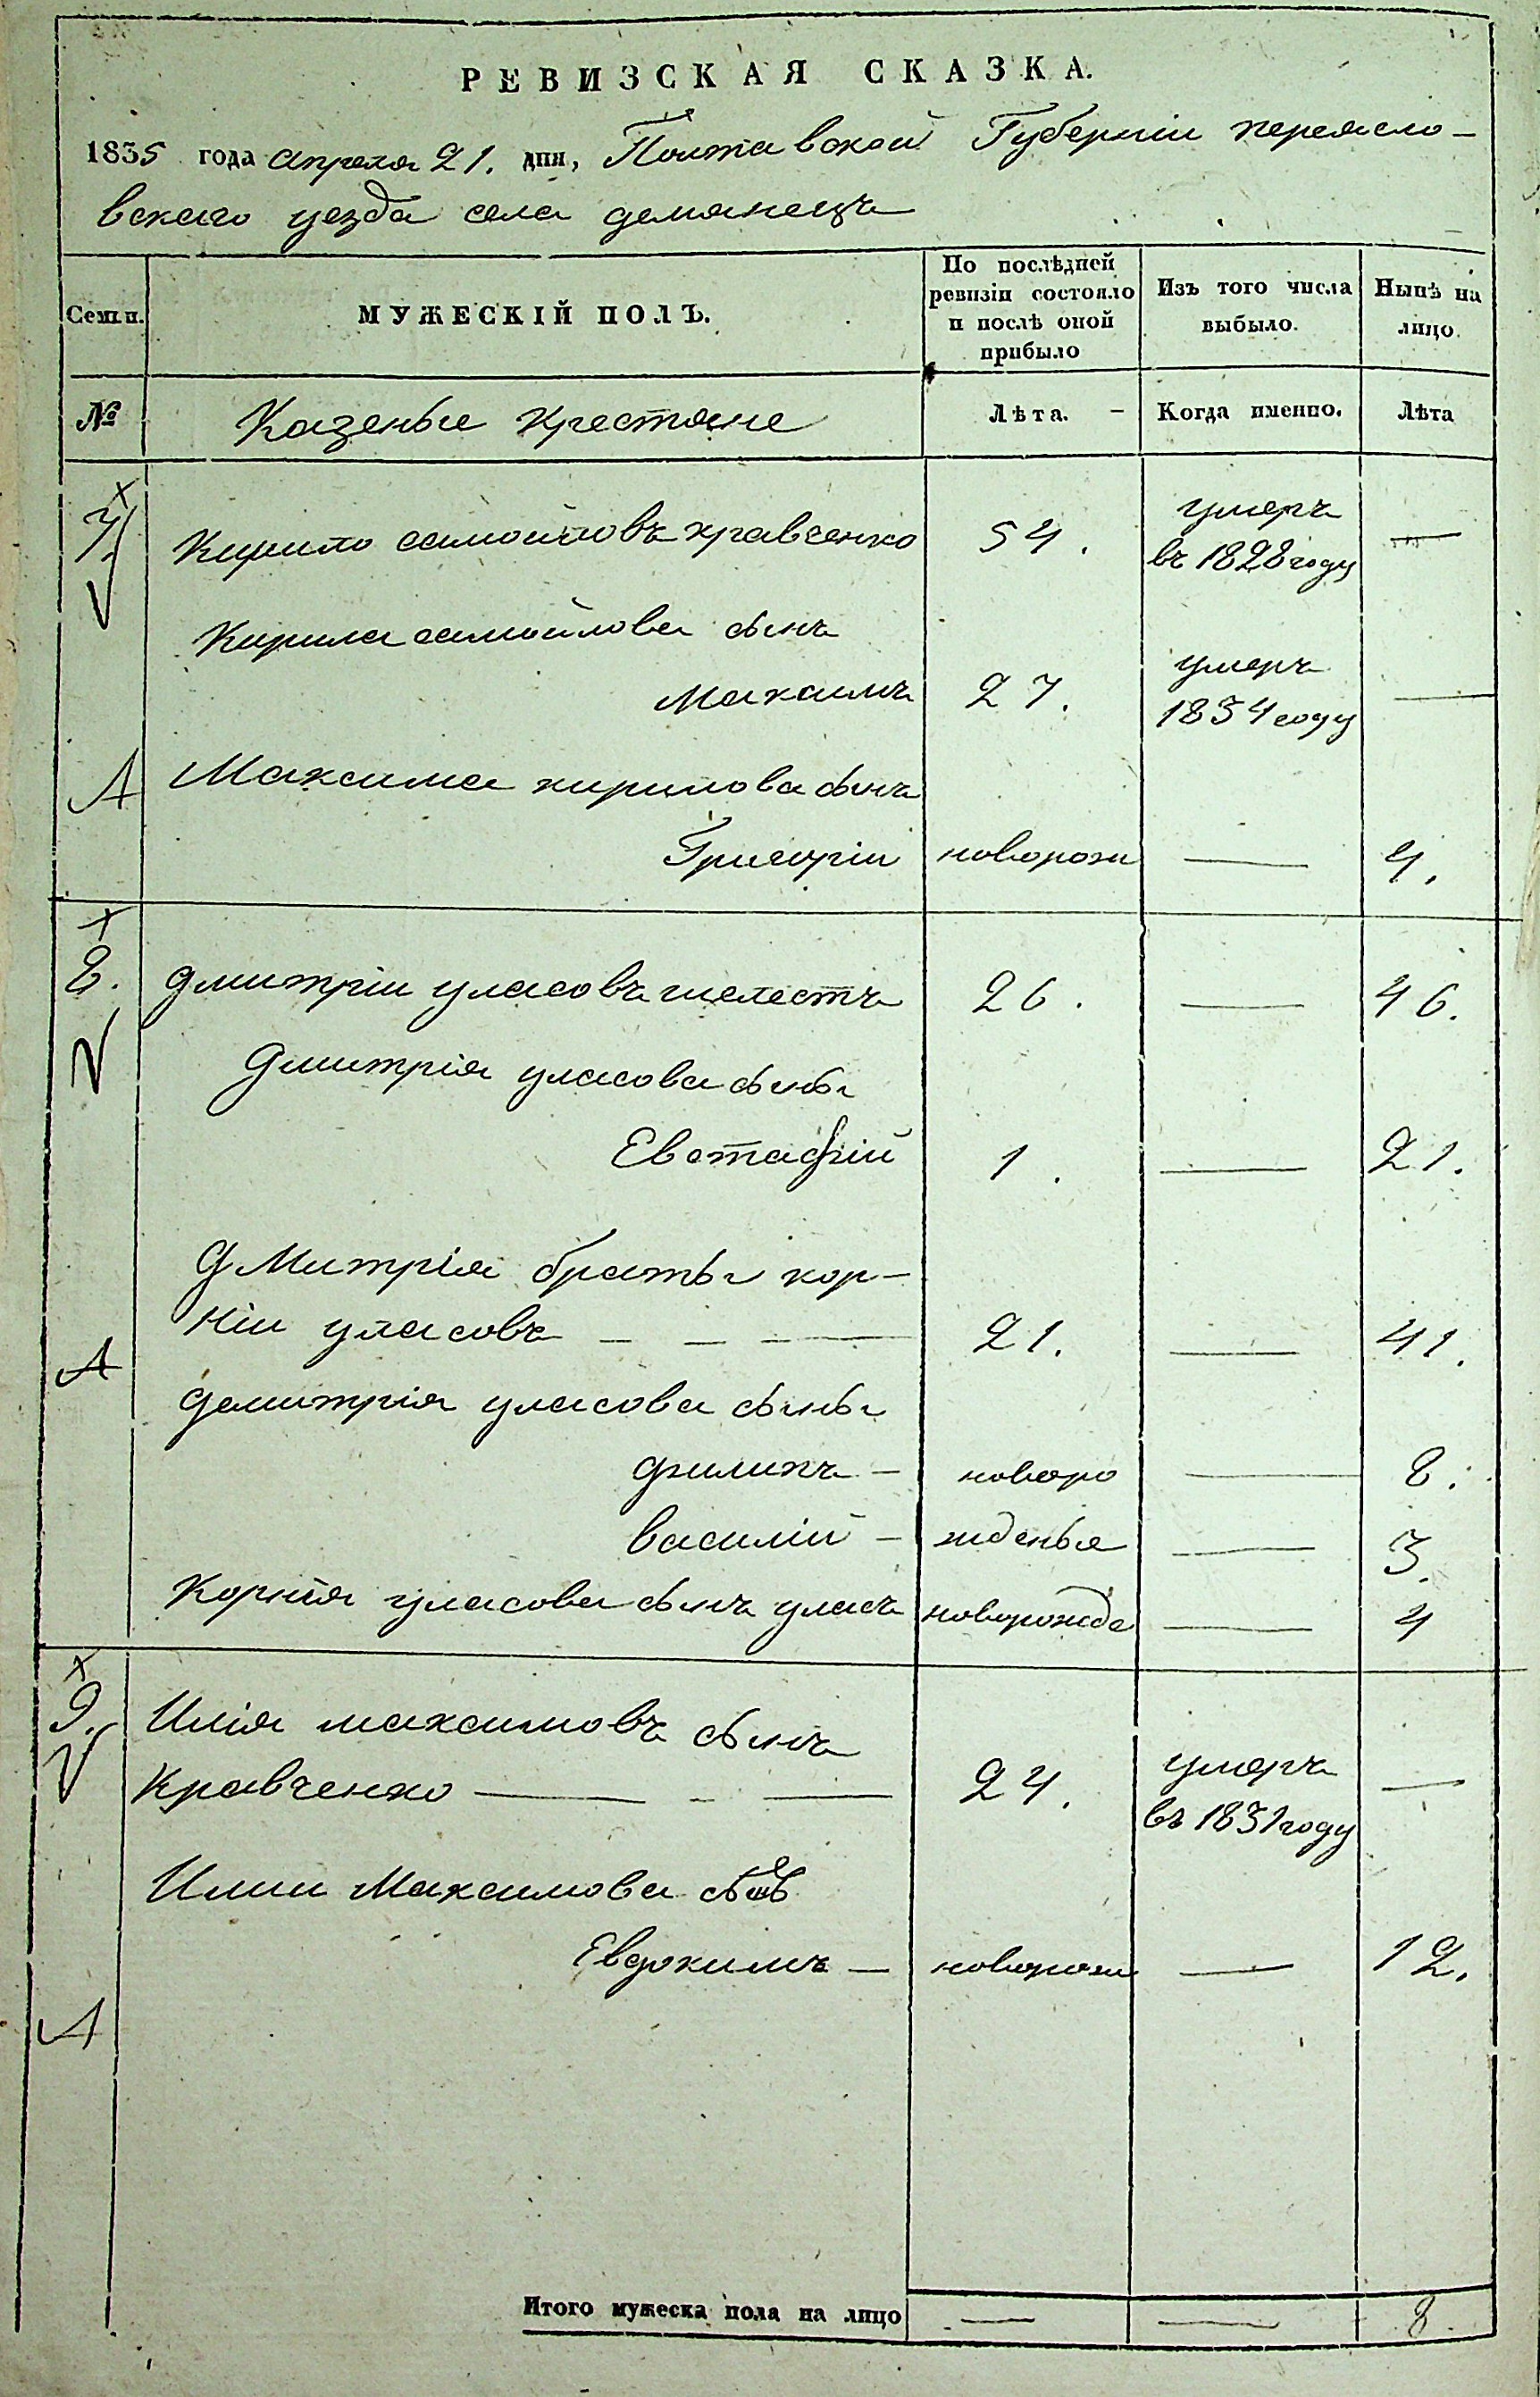 РЕВИЗСКАЯ СКАЗКА.
1835 года апреля 21. дня, Полтавской Губерніи переясло-
вскаго уезда села демянецъ
Семьи.
МУЖЕСКІЙ ПОЛЪ.
По послѣдней
ревизіи состояло
и послѣ оной
прибыло
Изъ того числа
выбыло.
Нынѣ на
лицо.
№
Казеные крестяне
Лѣта. -
Когда именно.
Лѣта
7. Кирило самойловъ кравченко 54. умеръ —
въ 1828 году
Кирила самойлова сынъ
Максимъ 27. умеръ —
1834 году
А Максима кирилова сынъ
Григоріи новорож — 4.
8. дмитріи уласовъ шелестъ 26. — 46.
Дмитрія уласова сыны
Евстафій 1. — 21.
Дмитрія братъ кор-
ніи уласовъ — — — 21. — 41.
А
демитрія уласова сыны
филипъ — новоро — 8.
василій — жденые — 3.
Корнія уласова сынъ уласъ новорожде — 4
9. Илія максимовъ сынъ
Кравченко — - — 24. умеръ —
въ 1831 году
Илии Максимова сынъ
Евдокимъ — новорож — 12.
А
Итого мужеска пола на лицо — — 8.